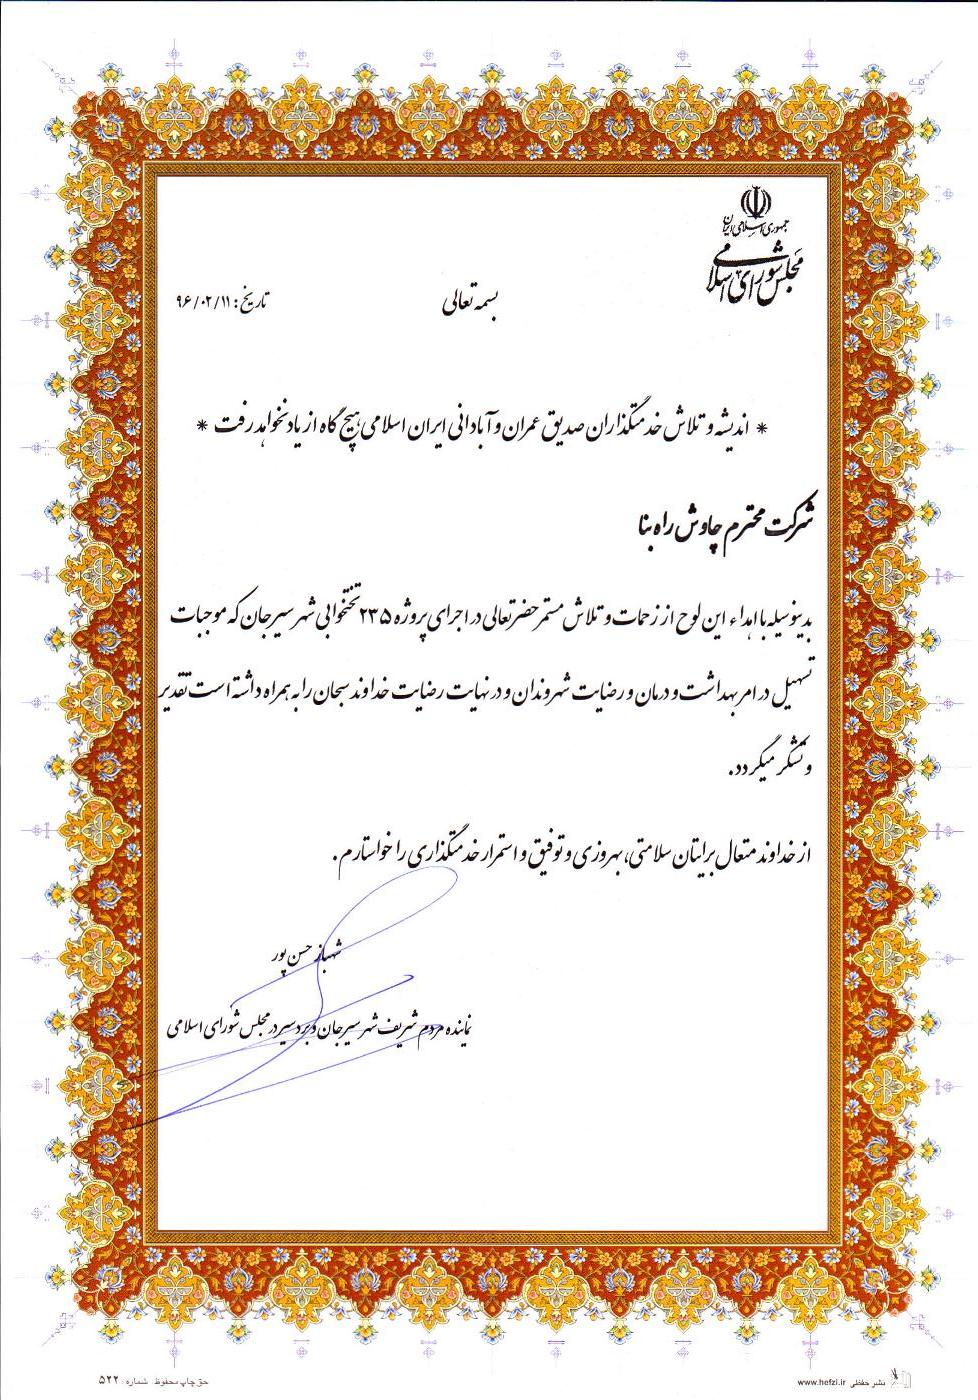 جمهوری اسلامی ایران
مجلس شورای اسلامی
بسمه تعالی
تاریخ: ۹۶/۰۲/۱۱
* اندیشه و تلاش خدمتگذاران صدیق عمران و آبادانی ایران اسلامی هیچ گاه از یاد نخواهد رفت *
شرکت محترم چاوش راه بنا
بدینوسیله با اهداء این لوح از زحمات و تلاش مستمر حضرتعالی در اجرای پروژه ۲۳۵ تختخوابی شهر سیرجان که موجبات
تسهیل در امر بهداشت و درمان و رضایت شهروندان و در نهایت رضایت خداوند سبحان را به همراه داشته است تقدیر
و تشکر میگردد.
از خداوند متعال برایتان سلامتی، بهروزی و توفیق و استمرار خدمتگذاری را خواستارم.
شهباز حسن پور
نماینده مردم شریف شهر سیرجان و بردسیر در مجلس شورای اسلامی
نشر حفظی www.hefzi.ir
حق چاپ محفوظ شماره: ۵۲۲